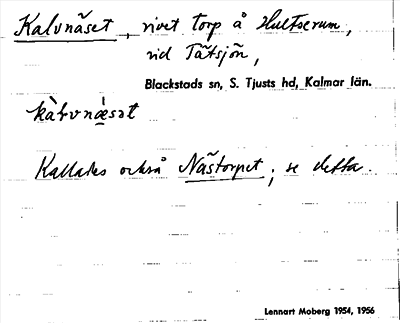 Kalvnäset, rivet torp å Hultserum,
vid Tätsjön,
Blackstads sn, S. Tjusts hd, Kalmar län.
kàlvnæ̀sət
Kallades också Nästorpet; se detta.
Lennart Moberg 1954, 1956